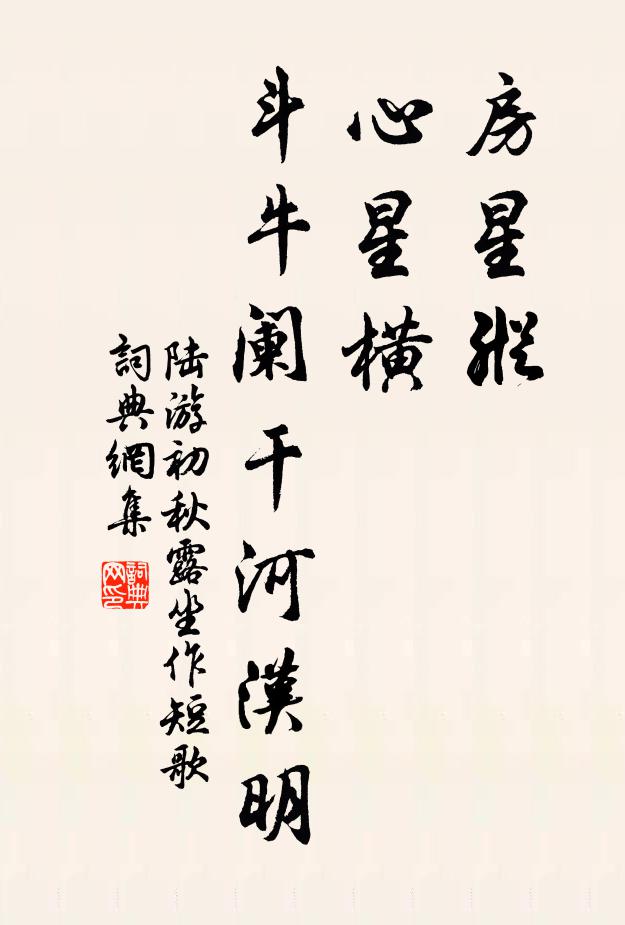 房星縱
心星橫
斗牛阑干河漢明
陆游初秋露坐作短歌
詞典網集
詞典
网印